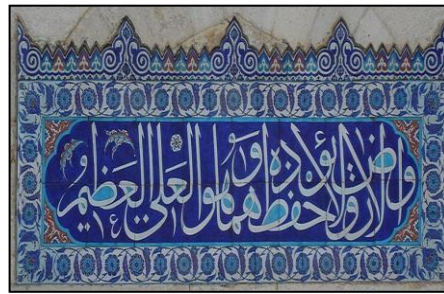 والارض ولا يؤده حفظهما وهو العلي العظيم